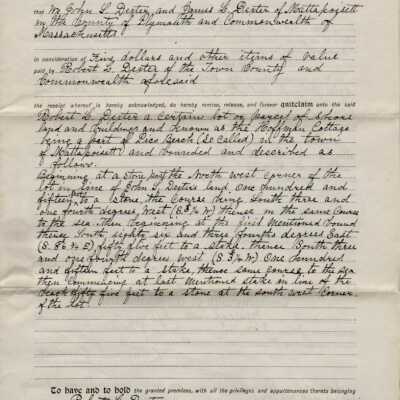 that We John L. Dexter, and James L. Dexter of Mattapoisett
in the County of Plymouth and Commonwealth of
Massachusetts
in consideration of Five dollars and other items of value
paid by Robert L. Dexter of the Town County and
Commonwealth aforesaid
the receipt whereof is hereby acknowledged, do hereby remise, release, and forever quitclaim unto the said
Robert L. Dexter a certain lot or parcel of Shore
land and Buildings and known as the Hoffman Cottage
being a part of Pico Beach (So called) in the town
of Mattapoisett and bounded and described as
follows.
Beginning at a stone post the North west corner of the
lot in line of John L. Dexters land, one hundred and
fifteen feet to a stone, the Course being South three and
one fourth degrees, West (S. 3¼ W) thense in the same Course
to the sea. then beginning at the first Mentioned bound
thense South eighty six and three fourths degrees East
(S. 86¾ E) fifty five feet to a stake, thence South three
and one fourth degrees west (S 3¼ W) One hundred
and fifteen feet to a stake, thense same course to the sea
then Commensing at last Mentioned stake in line of the
beach fifty five feet to a stone at the south west Corner
of the lot.
To have and to hold the granted premises, with all the privileges and appurtenances thereto belonging
Robert L. Dexter